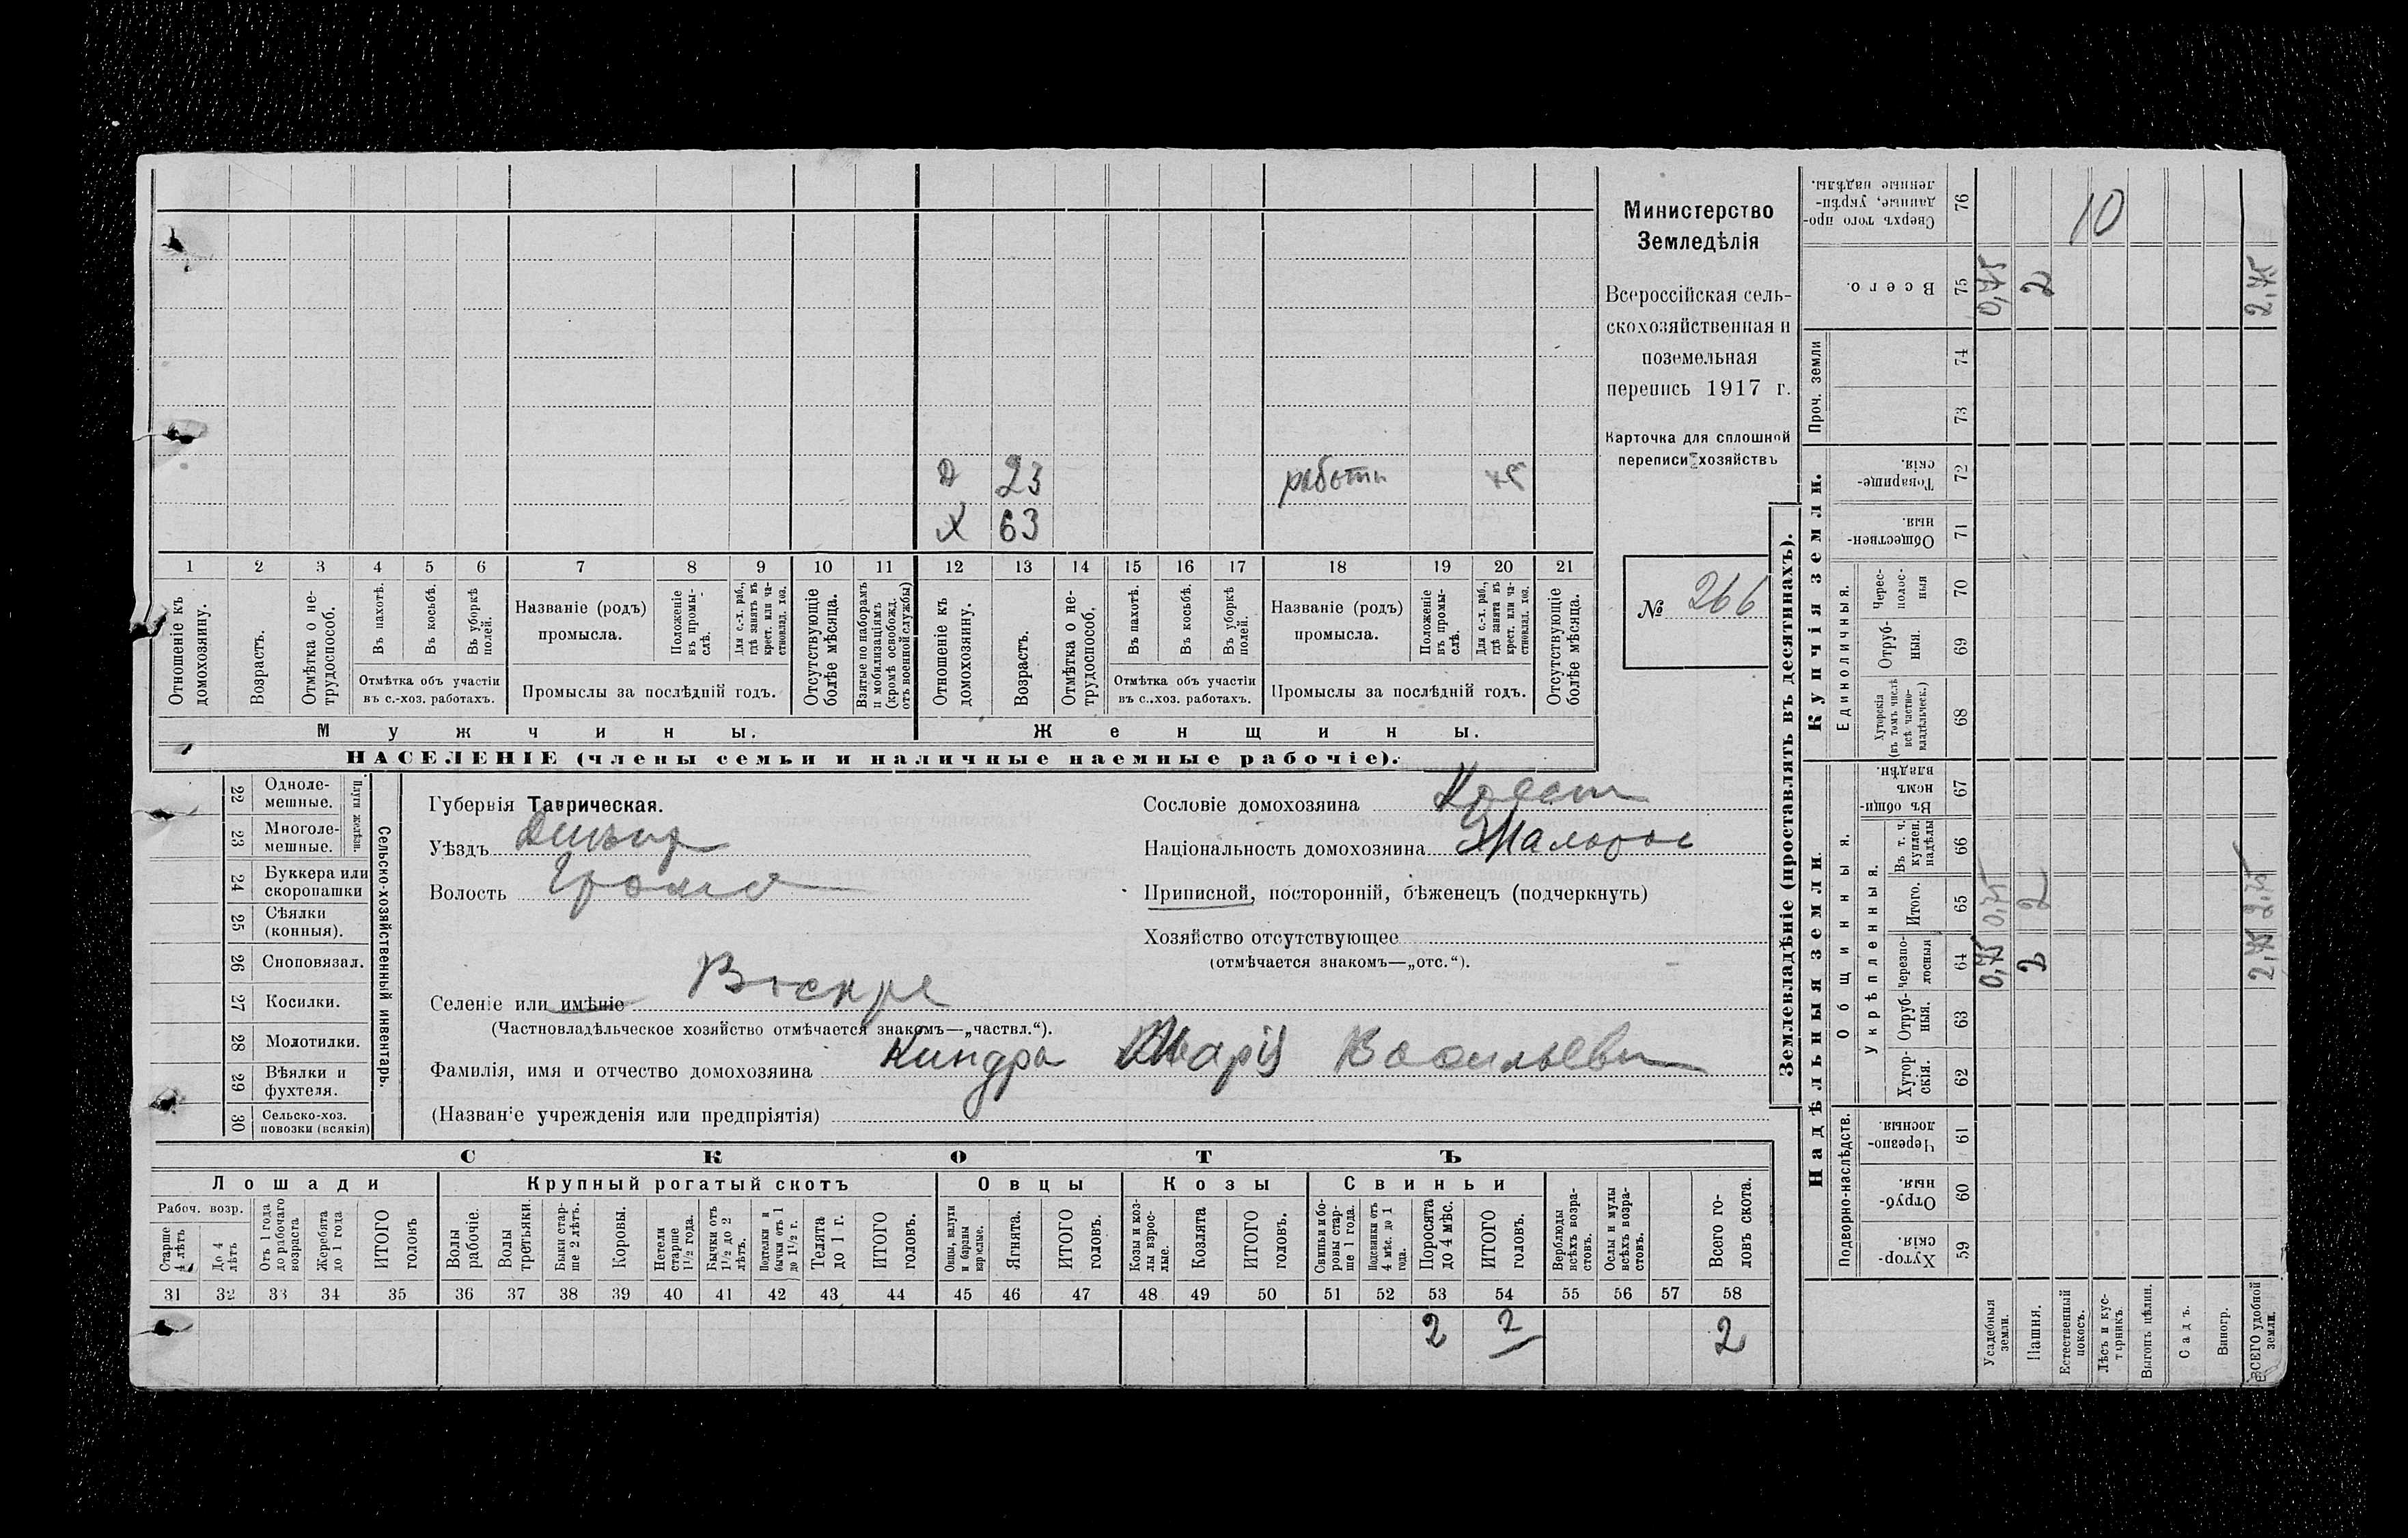 Министерство
Земледѣлія
Всероссійская сель-
скохозяйственная и
поземельная
перепись 1917 г.
Карточка для сплошной
переписи хозяйствъ
№ 266
Д 23 работн
Х 63
1 2 3 4 5 6 7 8 9 10 11 12 13 14 15 16 17 18 19 20 21
Отношеніе къ домохозяину.
Возрастъ.
Отмѣтка о не-трудоспособ.
Въ пахотѣ.
Въ косьбѣ.
Въ уборкѣ полей.
Отмѣтка объ участіи
въ с.-хоз. работахъ.
Названіе (родъ)
промысла.
Положеніе въ промы-слѣ.
Для с.-х. раб., гдѣ занятъ въ крест. или ча-стновлад. хоз.
Промыслы за послѣдній годъ.
Отсутствующіе болѣе мѣсяца.
Взятые по наборамъ и мобилизаціямъ (кромѣ освобожд. отъ военной службы)
Отношеніе къ домохозяину.
Возрастъ.
Отмѣтка о не-трудоспособ.
Въ пахотѣ.
Въ косьбѣ.
Въ уборкѣ полей.
Отмѣтка объ участіи
въ с.-хоз. работахъ.
Названіе (родъ)
промысла.
Положеніе въ промы-слѣ.
Для с.-х. раб., гдѣ занята въ крест. или ча-стновлад. хоз.
Промыслы за послѣдній годъ.
Отсутствующіе болѣе мѣсяца.
Мужчины.
Женщины.
НАСЕЛЕНІЕ (члены семьи и наличные наемные рабочіе).
Сельско-хозяйственный инвентарь.
Плуги желѣзн.
22 Одноле-мешные.
23 Многоле-мешные.
24 Буккера или скоропашки
25 Сѣялки (конныя).
26 Сноповязал.
27 Косилки.
28 Молотилки.
29 Вѣялки и фухтеля.
30 Сельско-хоз. повозки (всякія)
Губернія Таврическая.
Уѣздъ Днѣпр
Волость Громо
Селеніе или имѣніе Воскре
(Частновладѣльческое хозяйство отмѣчается знакомъ—„частвл.“).
Фамилія, имя и отчество домохозяина Киндра Марія Васильевн
(Названіе учрежденія или предпріятія)
Сословіе домохозяина Крест
Національность домохозяина Малорос
Приписной, посторонній, бѣженецъ (подчеркнуть)
Хозяйство отсутствующее
(отмѣчается знакомъ—„отс.“).
СКОТЪ
Лошади
Крупный рогатый скотъ
Овцы
Козы
Свиньи
Рабоч. возр.
Старше 4 лѣтъ
До 4 лѣтъ
Отъ 1 года до рабочаго возраста
Жеребята до 1 года
ИТОГО головъ
Волы рабочіе.
Волы третьяки.
Быки стар-ше 2 лѣтъ.
Коровы.
Нетели старше 1½ года.
Бычки отъ 1½ до 2 лѣтъ.
Подтелки и бычки отъ 1 до 1½ г.
Телята до 1 г.
ИТОГО головъ.
Овцы, валухи и бараны взрослые.
Ягнята.
ИТОГО головъ.
Козы и коз-лы взрос-лые.
Козлята
ИТОГО головъ.
Свиньи и бо-ровы стар-ше 1 года.
Подсвинки отъ 4 мѣс. до 1 года.
Поросята до 4 мѣс.
ИТОГО головъ.
Верблюды всѣхъ возра-стовъ.
Ослы и мулы всѣхъ возра-стовъ.
Всего го-ловъ скота.
31 32 33 34 35 36 37 38 39 40 41 42 43 44 45 46 47 48 49 50 51 52 53 54 55 56 57 58
2 2 2
Землевладѣніе (проставлять въ десятинахъ).
Купчія земли.
Надѣльныя земли.
Сверхъ того про-данные, укрѣп-ленные надѣлы. 76 10
Всего. 75 0,75 2 2,75
Проч. земли 74
73
Товарище-скія. 72
Обществен-ныя. 71
Единоличныя.
Черес-полос-ныя 70
Отруб-ныя. 69
Хуторскія (въ томъ числѣ всѣ частно-владѣльческ.) 68
Общинныя.
Въ общин-номъ владѣн. 67
Укрѣпленныя.
Въ т. ч. куплен. надѣлы 66
Итого. 65 0,75 2 2,75
Черезпо-лосныя 64 0,75 2 2,75
Отруб-ныя. 63
Хутор-скія. 62
Подворно-наслѣдств.
Черезпо-лосныя. 61
Отруб-ныя. 60
Хутор-скія. 59
Усадебныя земли.
Пашня.
Естественный покосъ.
Лѣсъ и кус-тарникъ.
Выгонъ цѣлин.
Садъ.
Виногр.
ВСЕГО удобной земли.